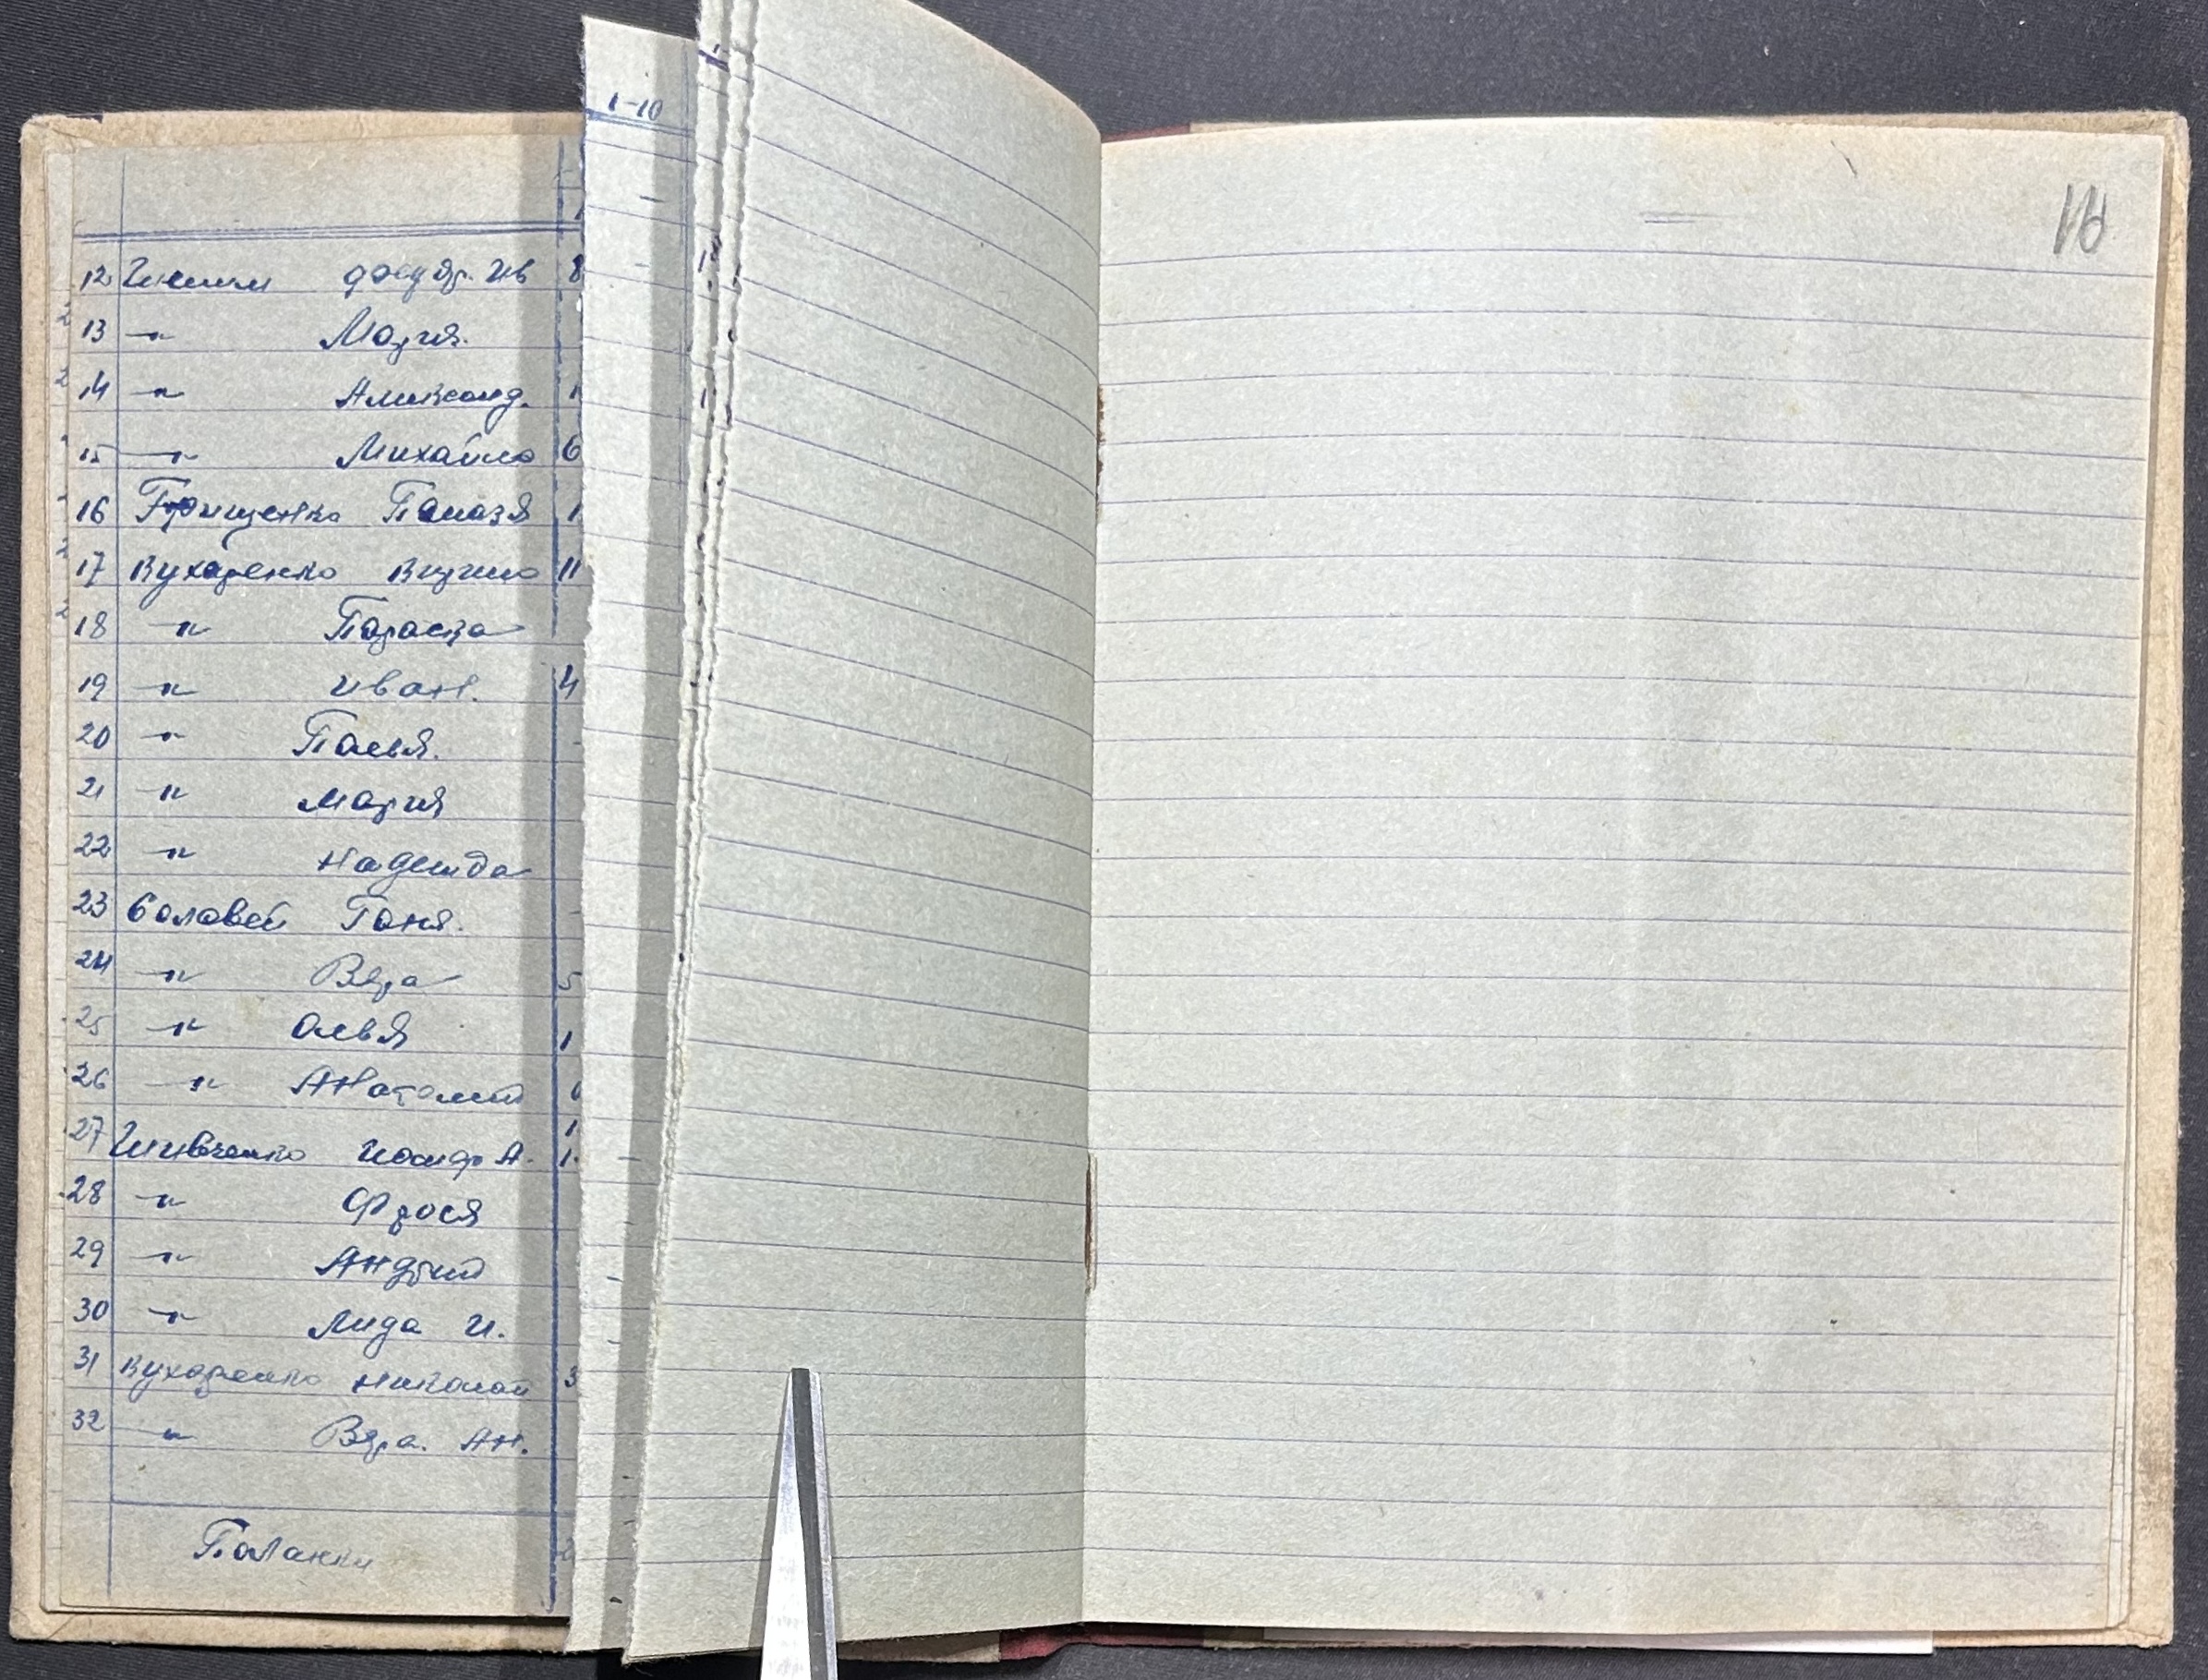 1-10
12 федор. Ив 8
13 —"— Мария.
14 —"— Александ. 1
15 —"— Михайло 6
16 Грищенко 1
17 Кухаренко Кирило 11
18 —"— Параска
19 —"— Иван. 4
20 —"—
21 —"— Мария
22 —"— Надежда
23 Соловей Ганя.
24 —"— Вера 5
25 —"— Ольга 1
26 —"— Анатолий 6
27 Шевченко Иосиф А. 1
28 —"— Фрося
29 —"— Андрий
30 —"— Лида И.
31 Кухаренко Николай 3
32 —"— Вера. Ан.